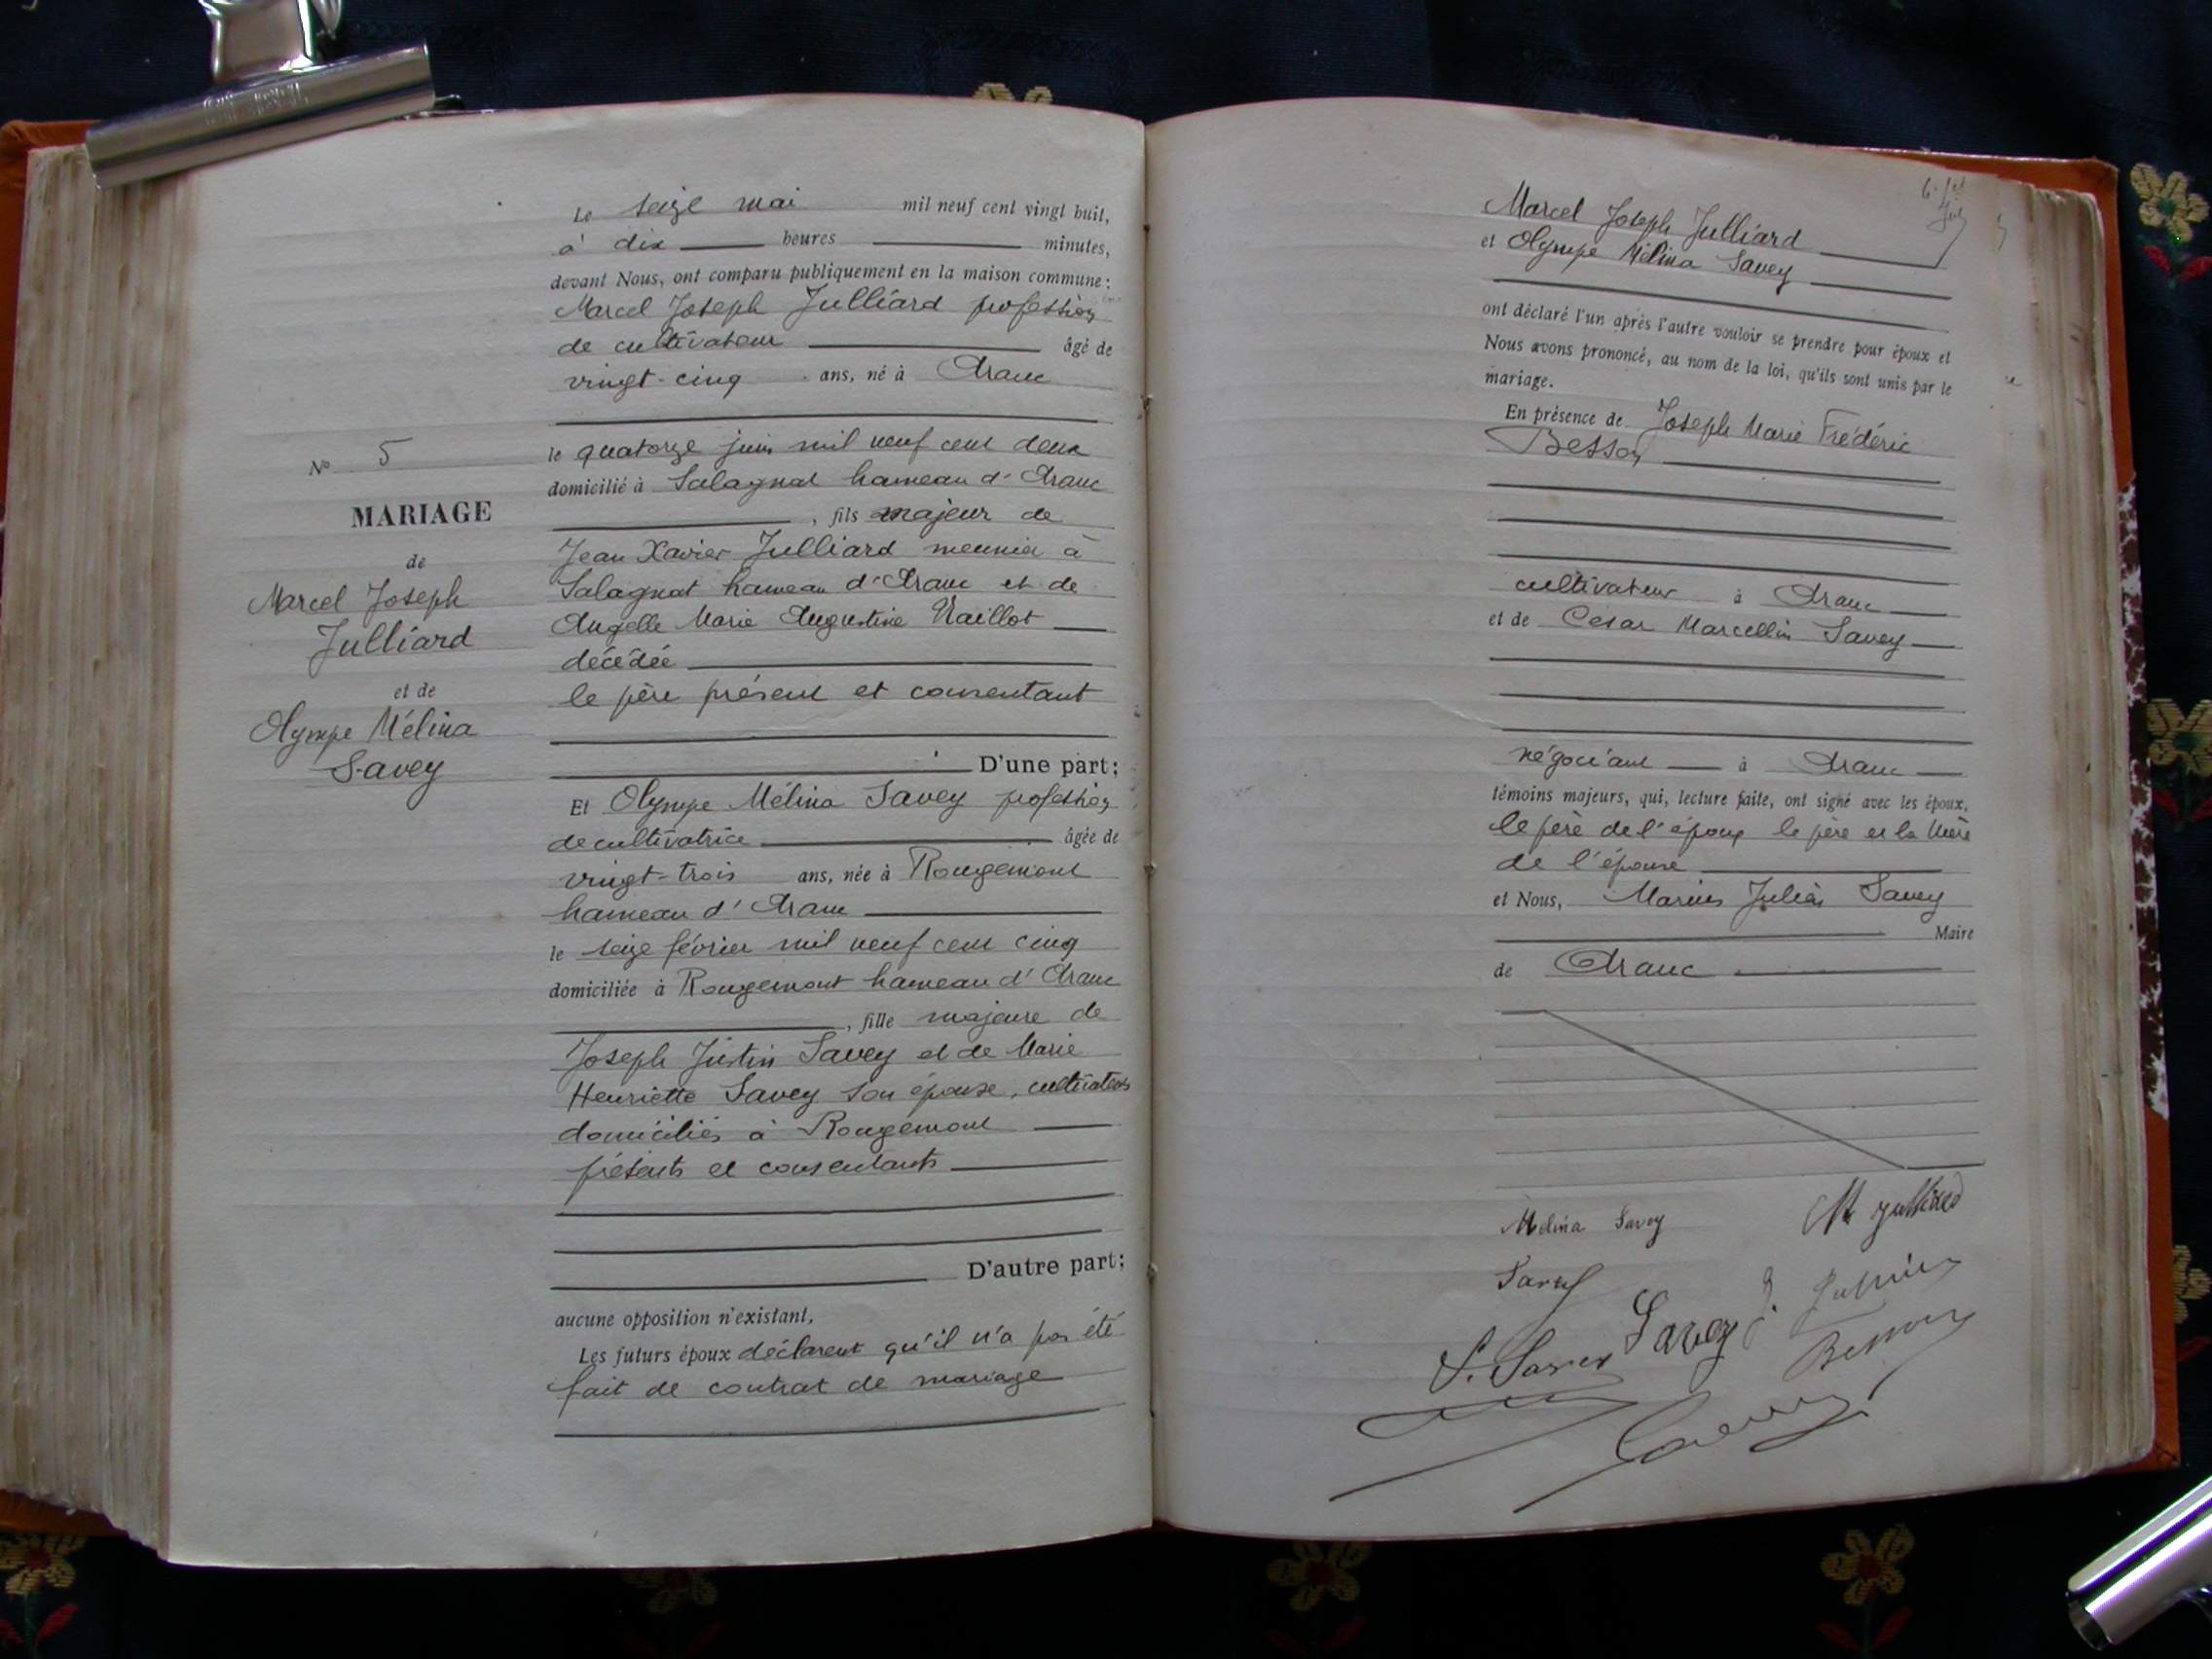 N° 5
MARIAGE
de
Marcel Joseph
Julliard
et de
Olympe Mélina
Savey
Le seize mai mil neuf cent vingt huit,
à dix heures minutes,
devant Nous, ont comparu publiquement en la maison commune :
Marcel Joseph Julliard profession
de cultivateur âgé de
vingt-cinq ans, né à Aranc
le quatorze juin mil neuf cent deux
domicilié à Salagnat hameau d'Aranc
, fils majeur de
Jean Xavier Julliard meunier à
Salagnat hameau d'Aranc et de
Angelle Marie Augustine Maillot
décédée
le père présent et consentant
D'une part ;
Et Olympe Mélina Savey profession
de cultivatrice âgée de
vingt-trois ans, née à Rougemont
hameau d'Aranc
le seize février mil neuf cent cinq
domiciliée à Rougemont hameau d'Aranc
, fille majeure de
Joseph Justin Savey et de Marie
Henriette Savey son épouse, cultivateurs
domiciliés à Rougemont
présents et consentants
D'autre part ;
aucune opposition n'existant,
Les futurs époux déclarent qu'il n'a pas été
fait de contrat de mariage
Marcel Joseph Julliard
et Olympe Mélina Savey
ont déclaré l'un après l'autre vouloir se prendre pour époux et
Nous avons prononcé, au nom de la loi, qu'ils sont unis par le
mariage.
En présence de Joseph Marie Frédéric
Besson
cultivateur à Aranc
et de César Marcellin Savey
négociant à Aranc
témoins majeurs, qui, lecture faite, ont signé avec les époux,
le père de l'époux le père et la mère
de l'épouse
et Nous, Marius Julien Savey
Maire
de Aranc
Mélina Savey M Julliard
Savey
Savey J. Julliard
S. Savey Besson
Savey